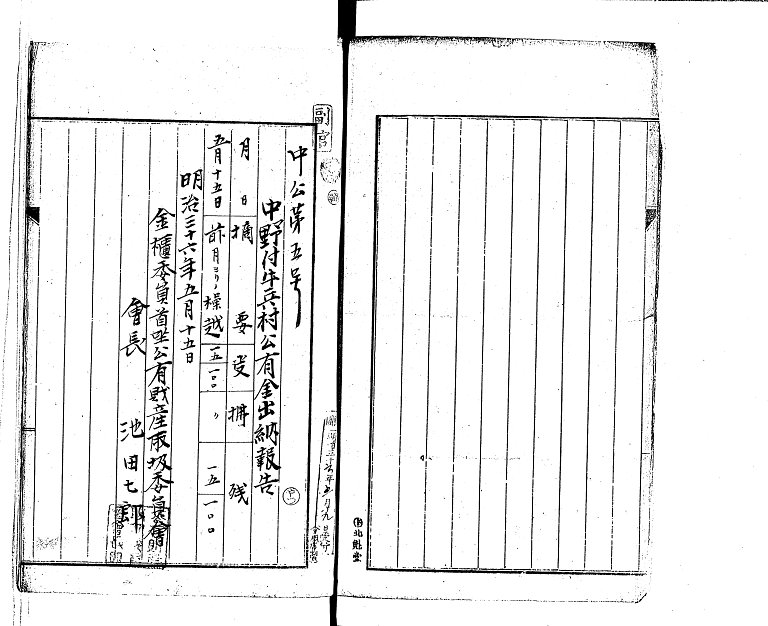 中公第五号
中野付牛兵村公有金出納報告
月日 摘要 受 拂 残
五月十五日 前月ヨリノ繰越 一五一〇〇 〃 一五一〇〇
明治三十六年五月十五日
金櫃委員首座公有財産取扱委員會
會長 池田七郎
副官
北魁堂